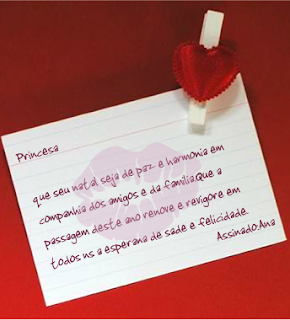 Princesa
que seu natal seja de paz e harmonia em
companhia dos amigos e da família.Que a
passagem deste ano renove e revigore em
todos ns a esperana de sade e felicidade.
Assinado:Ana